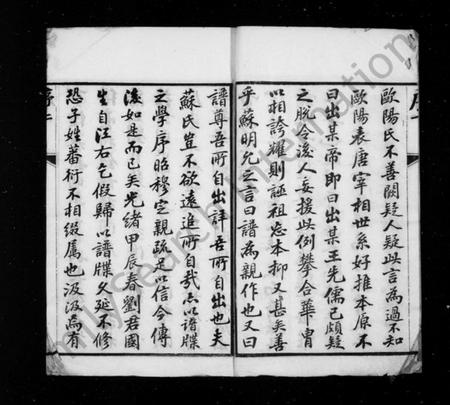 歐陽氏不善闕疑人疑此言為過不知
歐陽表唐宰相世系好推本原不
曰出某帝即曰出某王先儒已頗疑
之脫令後人妄援此例攀合華胄
以相誇耀則誣祖忘本抑又甚矣善
乎蘇明允之言曰譜為親作也又曰
譜尊吾所自出詳吾所自出也夫
蘇氏豈不欲遠追所自哉亦以譜牒
之學序昭穆定親疏足以信今傳
後如是而已矣光緒甲辰春劉君國
生自江右乞假歸以譜牒久延不修
恐子姓蕃衍不相綴屬也汲汲焉有